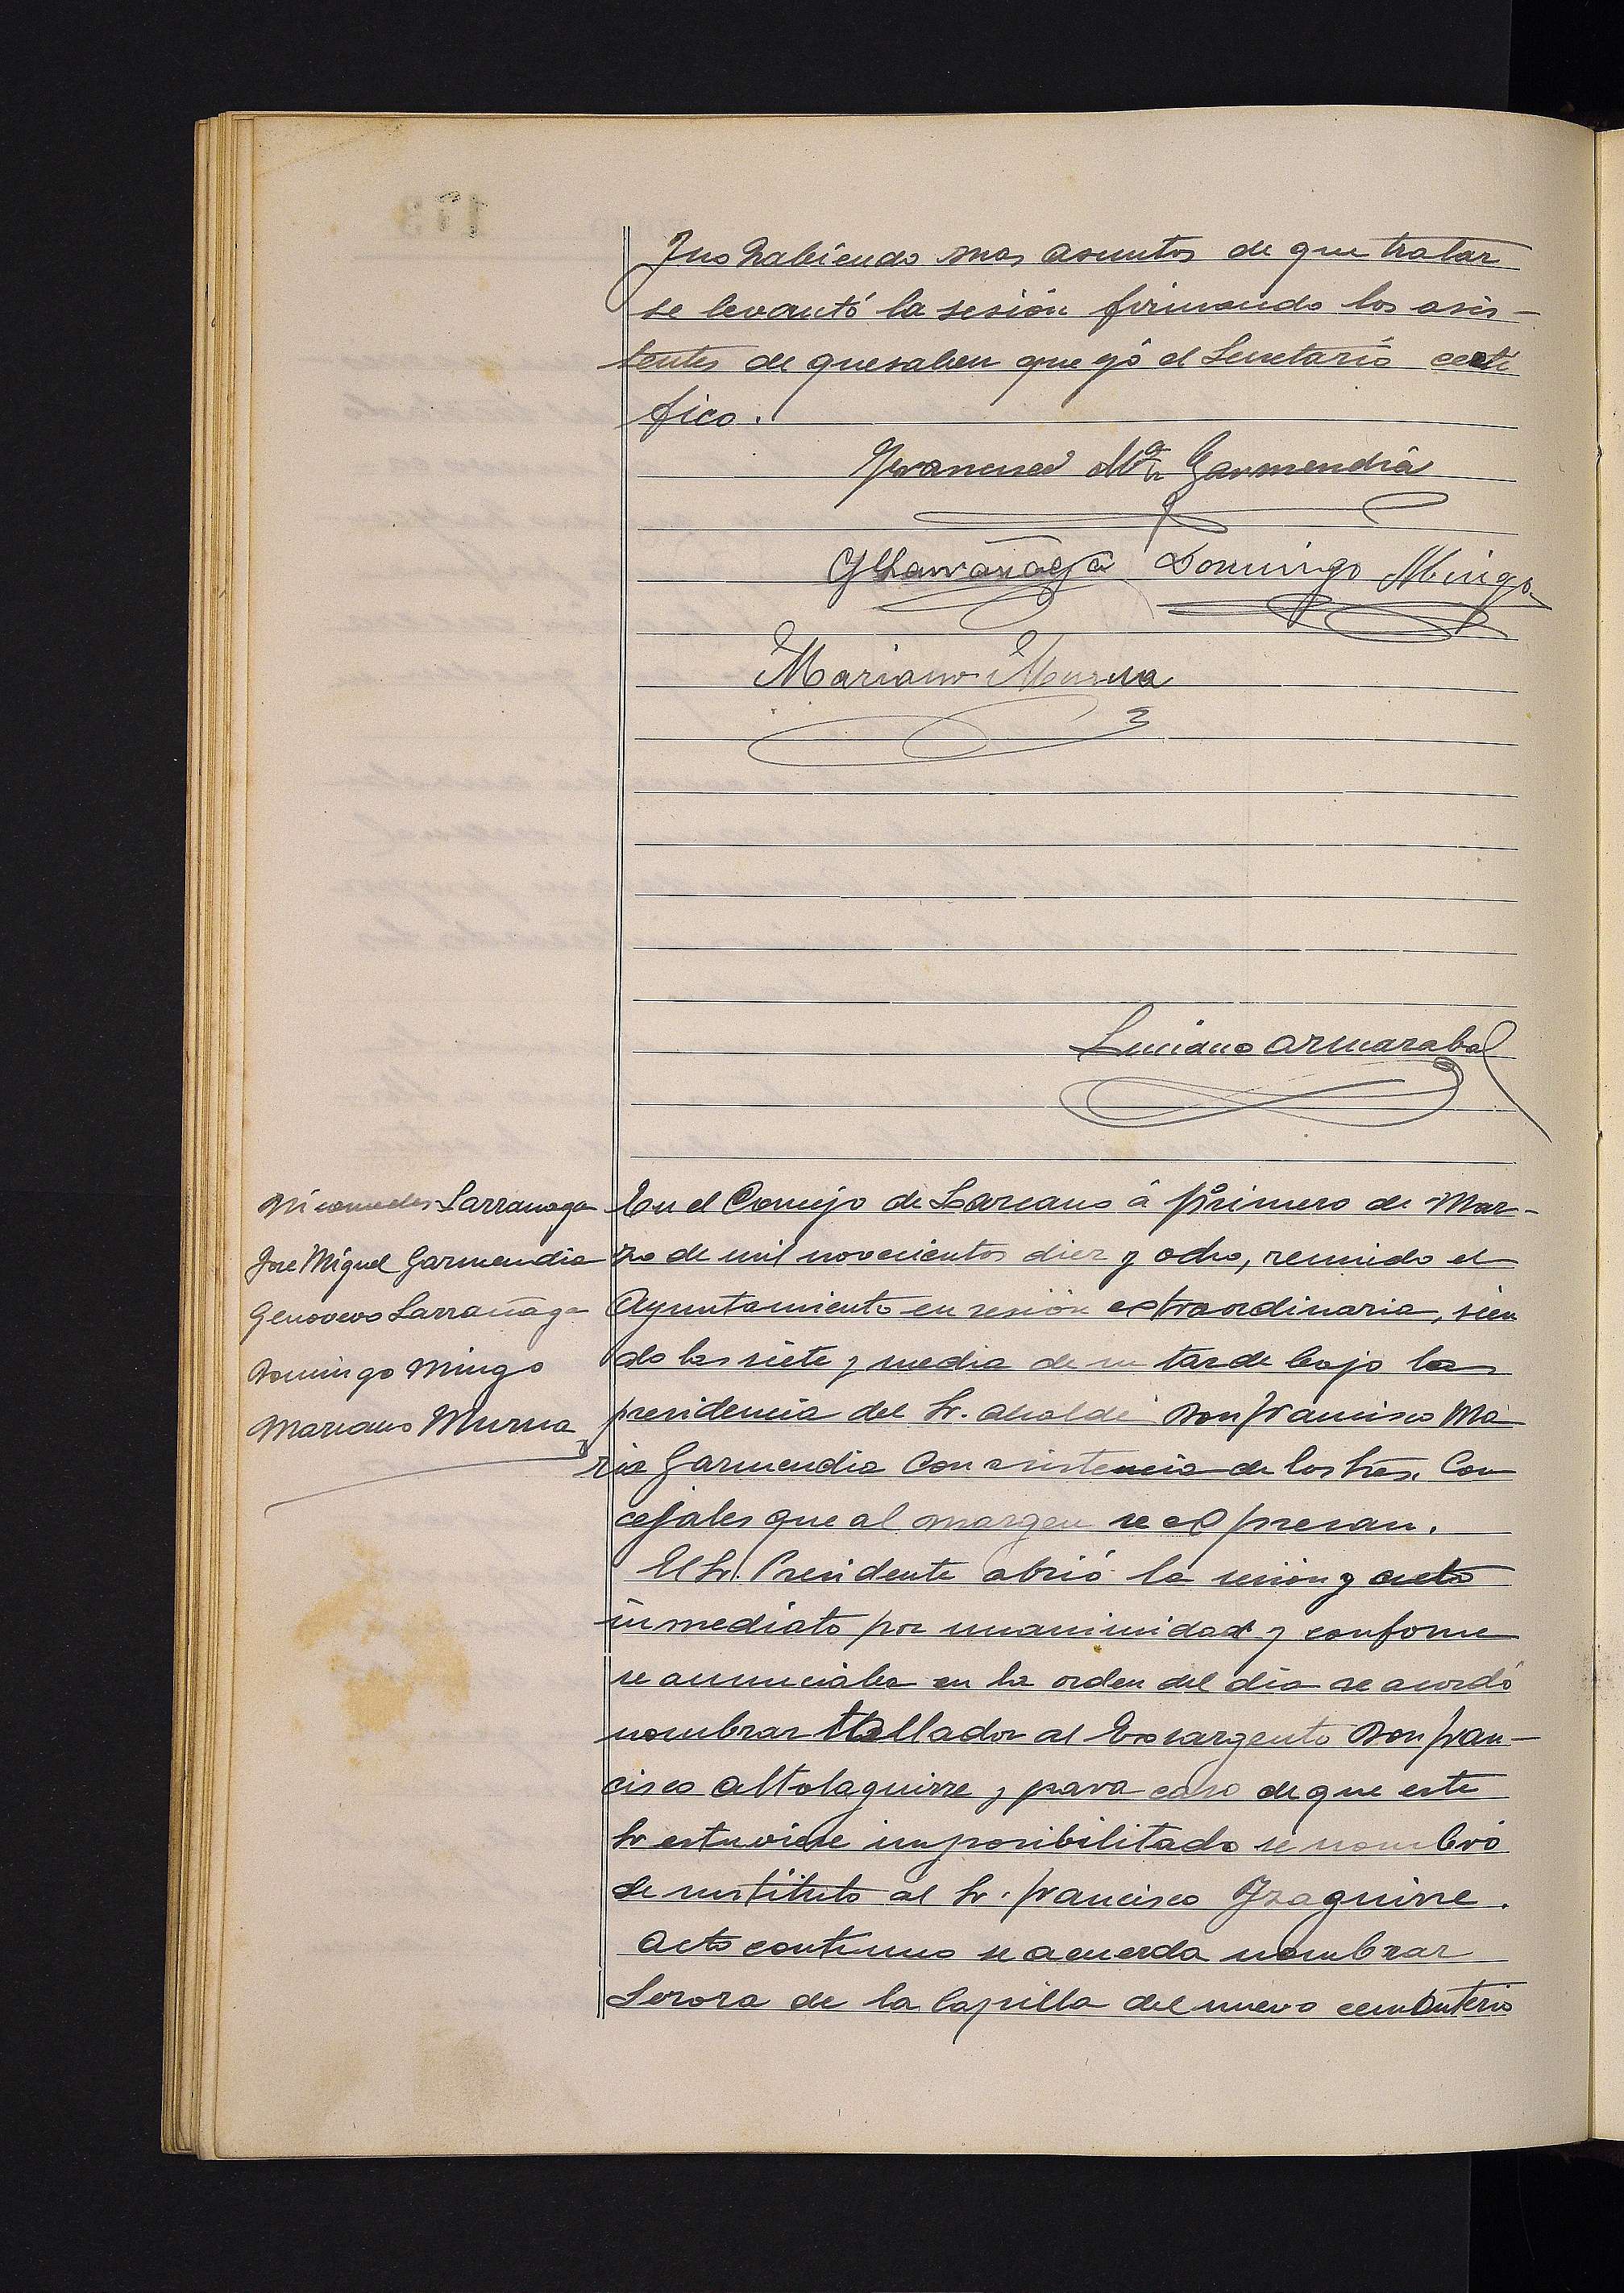 Y no habiendo mas asuntos de que tratar
se levantó la sesión firmando los asis-
tentes de que saben que yó el Secretario certi
fico.
Francisco Mª Garmendia
G Larrañaga Domingo Mingo
Mariano Murua
Luciano Armazabal
Nicomedes Larranaga
José Miguel Garmendia
Genovevo Larrañaga
Domingo Mingo
Mariano Murua
En el Concejo de Lazcano á primero de Mar-
zo de mil novecientos diez y ocho, reunido el
Ayuntamiento en sesión extraordinaria, sien
do las siete y media de su tarde bajo la
presidencia del Sr. Alcalde Don Francisco Ma
ria Garmendia con asistencia de los Sres. Con
cejales que al margen se expresan.
El Sr. Presidente abrió la sesión y acto
inmediato por unanimidad y conforme
se anunciaba en la orden del dia se acordó
nombrar tallador al Exsargento Don Fran-
cisco Altolaguirre y para caso de que este
Sr estuviese imposibilitado se nombró
de sustituto al Sr. Francisco Yzaguirre.
Acto continuo se acuerda nombrar
Serora de la Capilla del nuevo cementerio